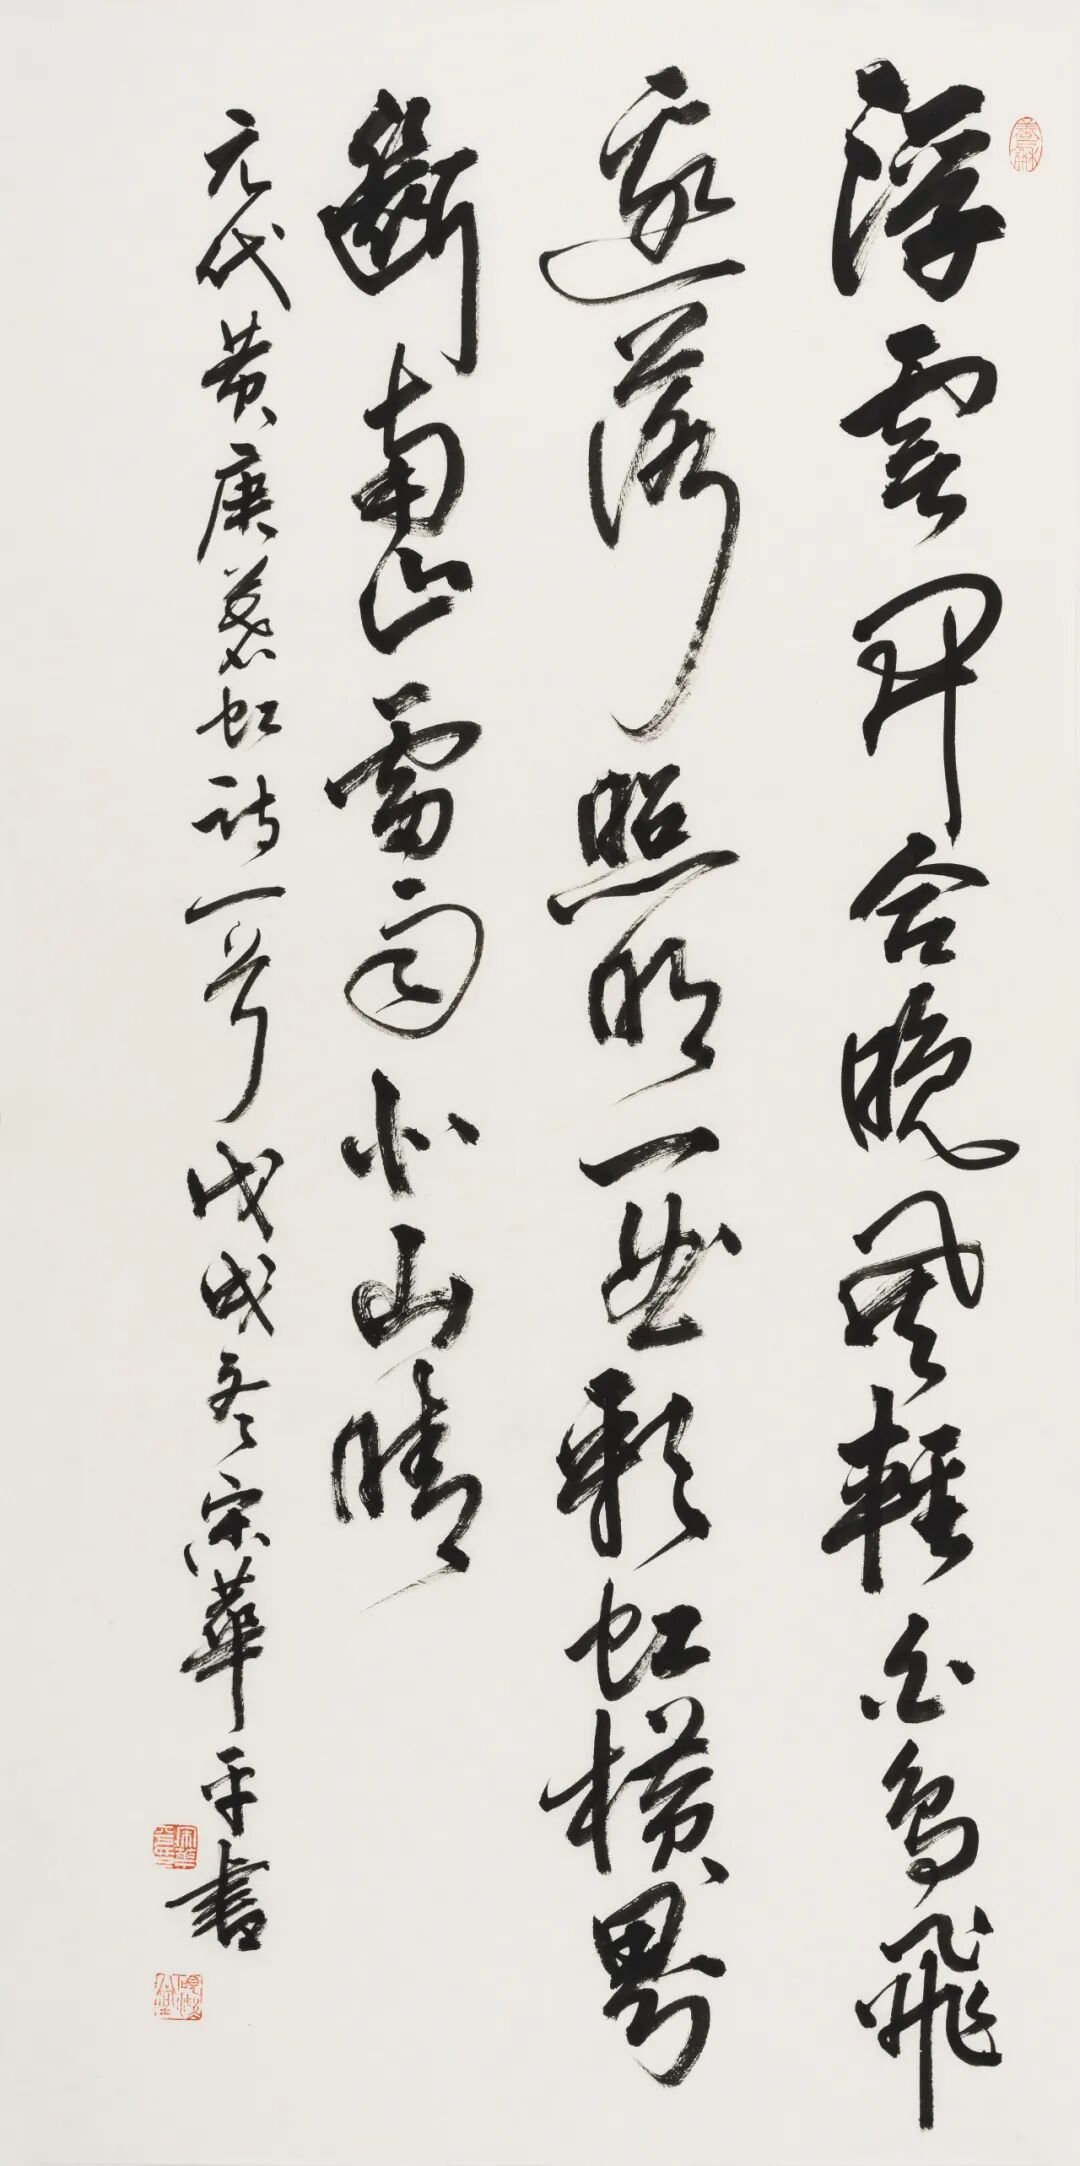 浮雲開合晚風輕白鳥飛
邊落照明一曲彩虹橫界
斷南山雷雨北山晴
元代黄庚暮虹詩一首戊戌冬宋華平書